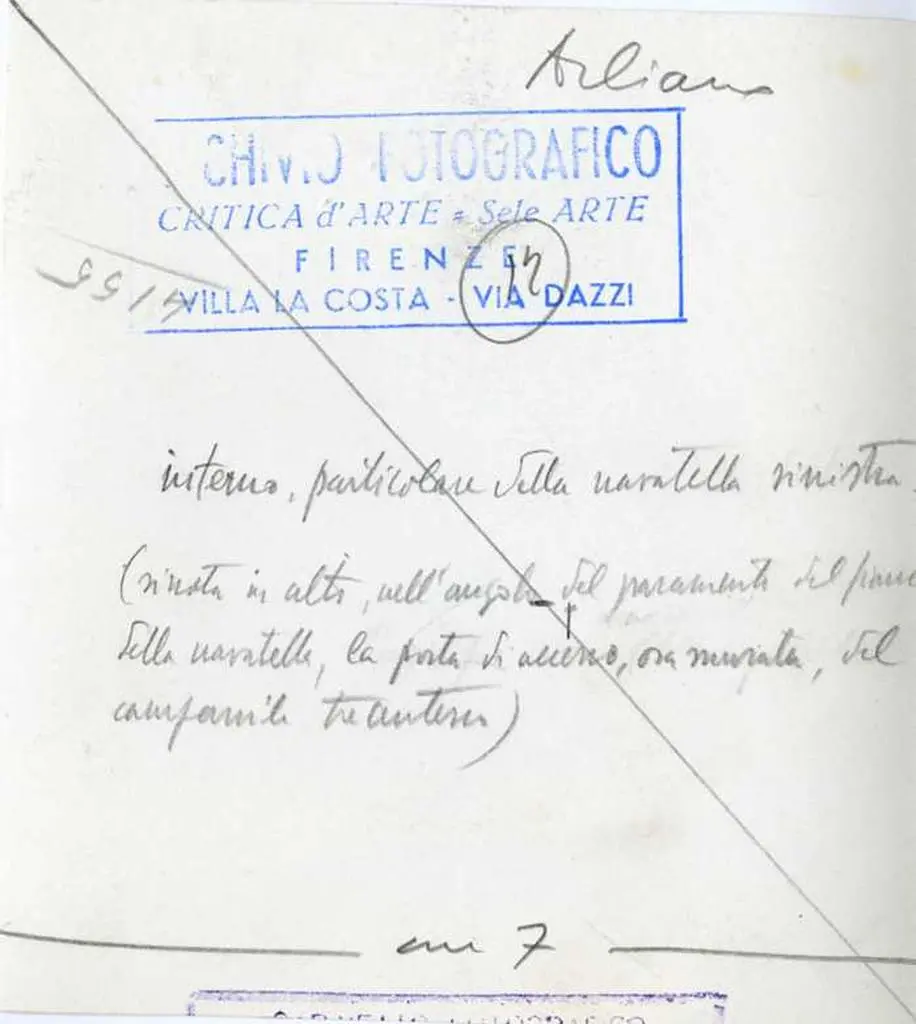 Arliano
CHIVIO FOTOGRAFICO
CRITICA d'ARTE = Sele ARTE
FIRENZE
VILLA LA COSTA - VIA DAZZI
interno, particolare della navatella sinistra.
(si noti in alto, nell'angolo del paramento del
della navatella, la porta di accesso, ora murata, del
campanile
cm 7